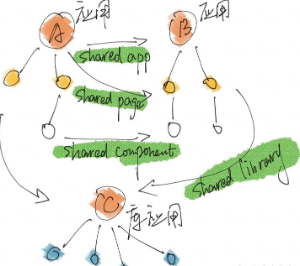 应用
应用
A
B
shared app
shared page
shared component
shared library
C
子应用